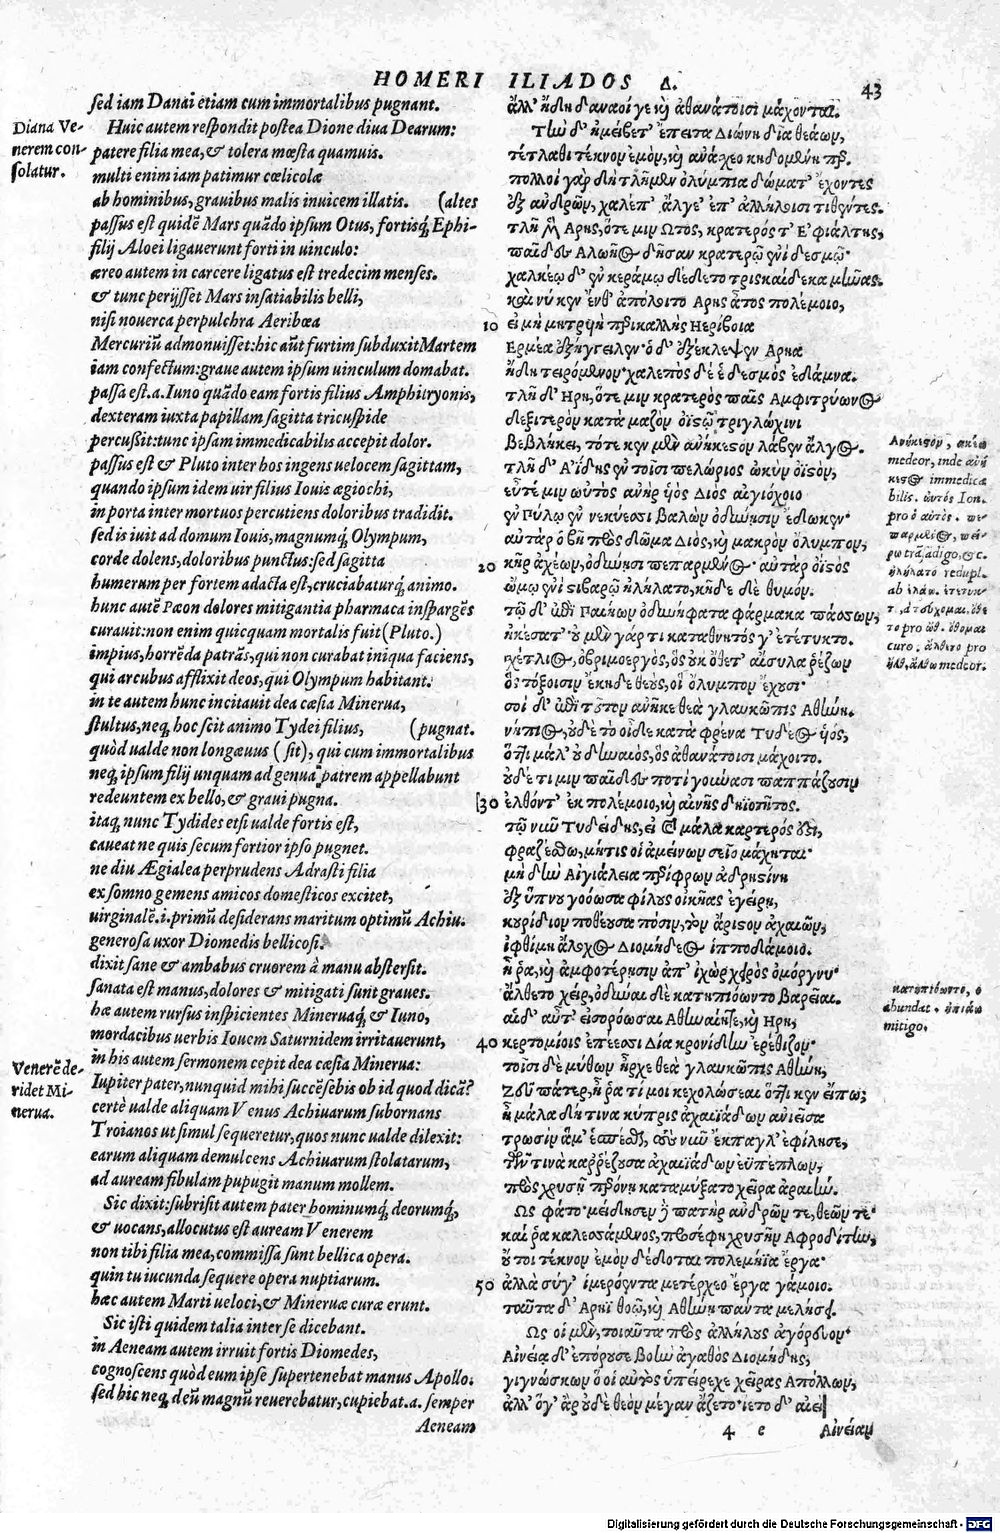 HOMERI ILIADOS Δ.
43
sed iam Danai etiam cum immortalibus pugnant.
Huic autem respondit postea Dione diua Dearum:
patere filia mea, & tolera mœsta quamuis.
multi enim iam patimur cœlicolæ
ab hominibus, grauibus malis inuicem illatis. (altes
passus est quidē Mars quādo ipsum Otus, fortisq́, Ephi-
filij Aloei ligauerunt forti in uinculo:
æreo autem in carcere ligatus est tredecim menses.
& tunc perijsset Mars insatiabilis belli,
nisi nouerca perpulchra Aeribœa
Mercuriū admonuisset: hic aūt furtim subduxit Martem
iam confectum: graue autem ipsum uinculum domabat.
passa est .a. Iuno quādo eam fortis filius Amphitryonis,
dexteram iuxta papillam sagitta tricuspide
percußit: tunc ipsam immedicabilis accepit dolor.
passus est & Pluto inter hos ingens uelocem sagittam,
quando ipsum idem uir filius Iouis ægiochi,
in porta inter mortuos percutiens doloribus tradidit.
sed is iuit ad domum Iouis, magnumq́, Olympum,
corde dolens, doloribus punctus: sed sagitta
humerum per fortem adacta est, cruciabaturq́, animo.
hunc autē Pæon dolores mitigantia pharmaca inspargēs
curauit: non enim quicquam mortalis fuit (Pluto.)
impius, horrēda patrās, qui non curabat iniqua faciens,
qui arcubus afflixit deos, qui Olympum habitant.
in te autem hunc incitauit dea cæsia Minerua,
stultus, neq́, hoc scit animo Tydei filius, (pugnat.
quòd ualde non longæuus (sit), qui cum immortalibus
neq́, ipsum filij unquam ad genua patrem appellabunt
redeuntem ex bello, & graui pugna.
itaq́, nunc Tydides etsi ualde fortis est,
caueat ne quis secum fortior ipso pugnet.
ne diu Ægialea perprudens Adrasti filia
ex somno gemens amicos domesticos excitet,
uirginalē .i. primū desiderans maritum optimū Achiu.
generosa uxor Diomedis bellicosi.
dixit sane & ambabus cruorem à manu abstersit.
sanata est manus, dolores & mitigati sunt graues.
hæ autem rursus inspicientes Mineruaq́, & Iuno,
mordacibus uerbis Iouem Saturnidem irritauerunt,
in his autem sermonem cepit dea cæsia Minerua:
Iupiter pater, nunquid mihi succēsebis ob id quod dicā?
certè ualde aliquam Venus Achiuarum subornans
Troianos ut simul sequeretur, quos nunc ualde dilexit:
earum aliquam demulcens Achiuarum stolatarum,
ad auream fibulam pupugit manum mollem.
Sic dixit: subrisit autem pater hominumq́, deorumq́,
& uocans, allocutus est auream Venerem
non tibi filia mea, commissa sunt bellica opera.
quin tu iucunda sequere opera nuptiarum.
hæc autem Marti ueloci, & Mineruæ curæ erunt.
Sic isti quidem talia inter se dicebant.
in Aeneam autem irruit fortis Diomedes,
cognoscens quòd eum ipse supertenebat manus Apollo.
sed hic neq́, deū magnū reuerebatur, cupiebat .a. semper
Aeneam
Diana Ve-
nerem con-
solatur.
Venerē de-
ridet Mi-
nerua.
ἀλλ' ἤδη δαναοί γε καὶ ἀθανάτοισι μάχονται.
Τὴν δ' ἠμείβετ' ἔπειτα Διώνη δῖα θεάων,
τέτλαθι τέκνον ἐμὸν, καὶ ἀνάχεο κηδομένη περ.
πολλοὶ γὰρ δὴ τλῆμεν ὀλύμπια δώματ' ἔχοντες
ἐξ ἀνδρῶν, χαλέπ' ἄλγε' ἐπ' ἀλλήλοισι τιθέντες.
τλῆ μὲν Αρης, ὅτε μιν Ωτος, κρατερός τ' Εφιάλτης,
παῖδες Αλωῆος δῆσαν κρατερῷ ἐνὶ δεσμῷ·
χαλκέῳ δ' ἐν κεράμῳ δέδετο τρισκαίδεκα μῆνας.
καί νύ κεν ἔνθ' ἀπόλοιτο Αρης ἆτος πολέμοιο,
10 εἰ μὴ μητρυὴ περικαλλὴς Ηερίβοια
Ερμέᾳ ἐξήγγειλεν· ὁ δ' ἐξέκλεψεν Αρηα
ἤδη τειρόμενον· χαλεπὸς δέ ἑ δεσμὸς ἐδάμνα.
τλῆ δ' Ηρη, ὅτε μιν κρατερὸς παῖς Αμφιτρύωνος
δεξιτερὸν κατὰ μαζὸν ὀϊστῷ τριγλώχινι
βεβλήκει, τότε κεν μὲν ἀνήκεστον λάβεν ἄλγος.
τλῆ δ' Αΐδης ἐν τοῖσι πελώριος ὠκὺν ὀϊστὸν,
εὖτέ μιν ωὐτὸς ἀνὴρ υἱὸς Διὸς αἰγιόχοιο
ἐν Πύλῳ ἐν νεκύεσσι βαλὼν ὀδύνῃσιν ἔδωκεν·
αὐτὰρ ὁ βῆ πρὸς δῶμα Διὸς, καὶ μακρὸν ὄλυμπον,
20 κῆρ ἀχέων, ὀδύνῃσι πεπαρμένος· αὐτὰρ ὀϊστὸς
ὤμῳ ἐνὶ στιβαρῷ ἠλήλατο, κῆδε δὲ θυμόν.
τῷ δ' ἐπὶ Παιήων ὀδυνήφατα φάρμακα πάσσων,
ἠκέσατ' οὐ μὲν γάρ τι καταθνητός γ' ἐτέτυκτο.
σχέτλιος, ὀβριμοεργὸς, ὃς οὐκ ὄθετ' αἴσυλα ῥέζων
ὃς τόξοισιν ἔκηδε θεοὺς, οἳ ὄλυμπον ἔχουσι·
σοὶ δ' ἐπὶ τοῦτον ἀνῆκε θεὰ γλαυκῶπις Αθήνη.
νήπιος, οὐδὲ τὸ οἶδε κατὰ φρένα Τυδέος υἱὸς,
ὅττι μάλ' οὐ δηναιὸς, ὃς ἀθανάτοισι μάχοιτο.
οὐδέ τι μιν παῖδες ποτὶ γούνασι παππάζουσιν
[30 ἐλθόντ' ἐκ πολέμοιο, καὶ αἰνῆς δηϊοτῆτος.
τῷ νῦν Τυδείδης, εἰ καὶ μάλα καρτερός ἐστι,
φραζέσθω, μήτις οἱ ἀμείνων σεῖο μάχηται·
μὴ δὴν Αἰγιάλεια περίφρων ἀδρηστίνη
ἐξ ὕπνου γοόωσα φίλους οἰκῆας ἐγείρῃ,
κουρίδιον ποθέουσα πόσιν, τὸν ἄριστον ἀχαιῶν,
ἰφθίμη ἄλοχος Διομήδεος ἱπποδάμοιο.
ἦ ῥα, καὶ ἀμφοτέρῃσιν ἀπ' ἰχὼρ χειρὸς ὀμόργνυ·
ἄλθετο χεὶρ, ὀδύναι δὲ κατηπιόωντο βαρεῖαι.
αἱ δ' αὖτ' εἰσορόωσαι Αθηναίη τε, καὶ Ηρη,
40 κερτομίοις ἐπέεσσι Δία κρονίδην ἐρέθιζον·
τοῖσι δὲ μύθων ἦρχε θεὰ γλαυκῶπις Αθήνη,
Ζεῦ πάτερ, ἦ ῥά τί μοι κεχολώσεαι ὅττι κεν εἴπω;
ἦ μάλα δή τινα κύπρις ἀχαιϊάδων ἀνιεῖσα
τρωσὶν ἅμ' ἑσπέσθαι, τοὺς νῦν ἔκπαγλ' ἐφίλησε,
τῶν τινὰ καρρέζουσα ἀχαιϊάδων ἐϋπέπλων,
πρὸς χρυσῇ περόνῃ καταμύξατο χεῖρα ἀραιήν.
Ως φάτο· μείδησεν δὲ πατὴρ ἀνδρῶν τε, θεῶν τε·
καί ῥα καλεσσάμενος, προσέφη χρυσῆν Αφροδίτην,
οὔ τοι τέκνον ἐμὸν δέδοται πολεμήϊα ἔργα·
50 ἀλλὰ σύγ' ἱμερόεντα μετέρχεο ἔργα γάμοιο.
ταῦτα δ' Αρηϊ θοῷ, καὶ Αθήνῃ πάντα μελήσει.
Ως οἱ μὲν, τοιαῦτα πρὸς ἀλλήλους ἀγόρευον·
Αἰνείᾳ δ' ἐπόρουσε βοὴν ἀγαθὸς Διομήδης,
γιγνώσκων ὅ οἱ αὐτὸς ὑπείρεχε χεῖρας Απόλλων,
ἀλλ' ὅγ' ἄρ οὐδὲ θεὸν μέγαν ἅζετο· ἵετο δ' αἰεὶ
4 e
Αἰνείαν
Ανήκεστον, ἀκέω
medeor, inde ἀνή
κεστος immedica
bilis. ωὐτὸς Ion.
pro ὁ αὐτὸς. πε-
παρμένος, πεί-
ρω trā, adigo, &c.
ἠλήλατο redupl.
ab ἐλάω. ἐτετυκ-
pro
curo. ἄλθετο pro
medeor.
κατηπιόωντο, ο
abundat. ἠπιάω
mitigo.
Digitalisierung gefördert durch die Deutsche Forschungsgemeinschaft - DFG